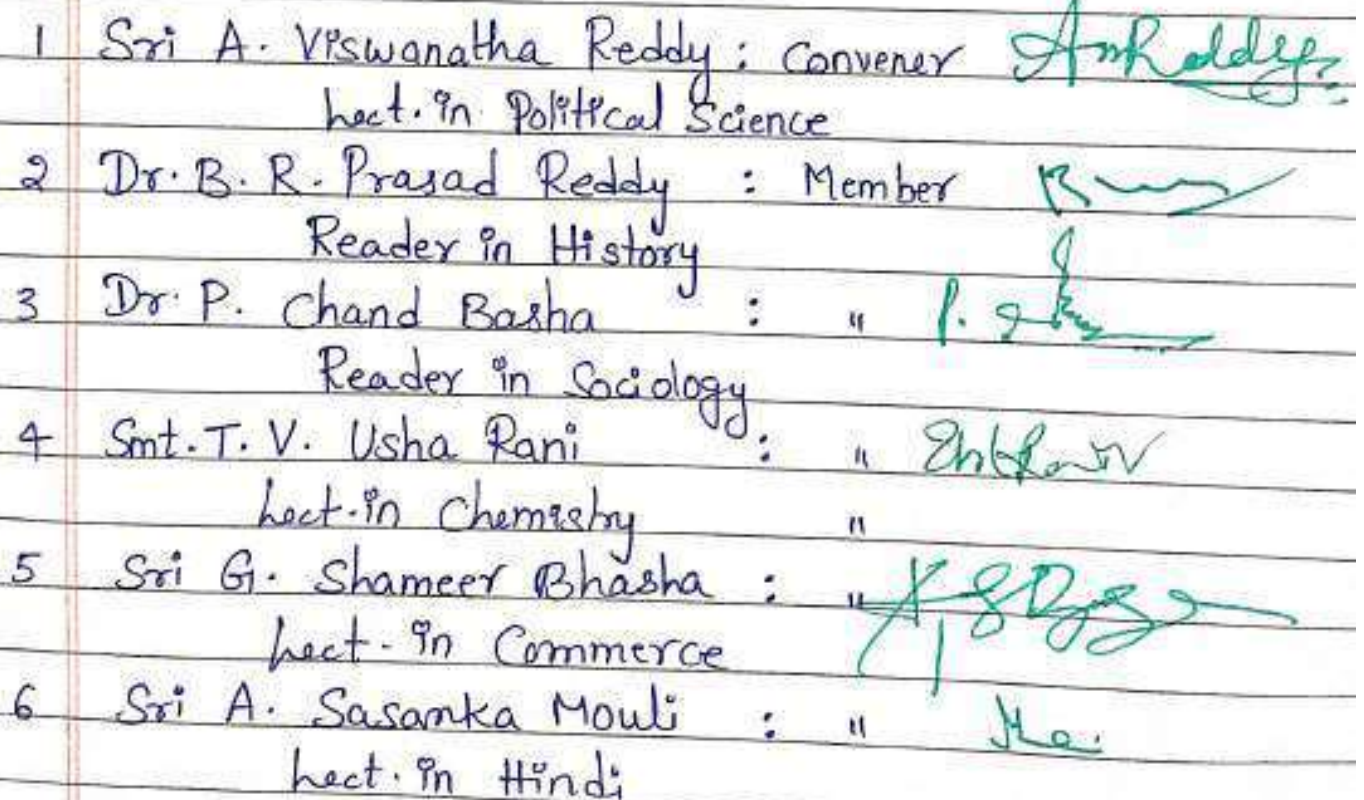 1 Sri A. Viswanatha Reddy : Convener
Lect. in Political Science
2 Dr. B. R. Prasad Reddy : Member
Reader in History
3 Dr. P. Chand Basha : "
Reader in Sociology
4 Smt. T. V. Usha Rani : "
Lect. in Chemistry "
5 Sri G. Shameer Bhasha : "
Lect. in Commerce
6 Sri A. Sasanka Mouli : "
Lect. in Hindi